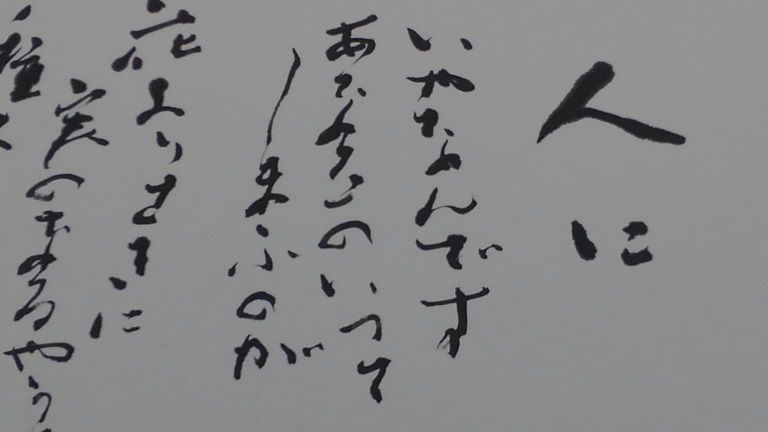 人に
いやなんです
あなたのいつて
しまふのが
花よりさきに
実のなるやうな
種